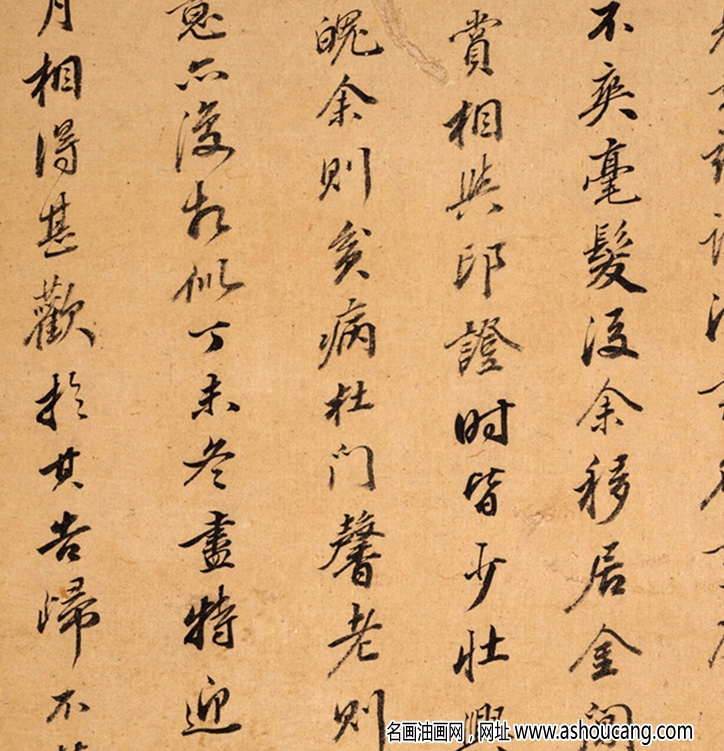 不爽毫髮後余移居金閶
賞相與印證时皆少壯興
魄余則貧病杜门馨老則
意六復相似丁未冬盡特迎
月相得甚歡於其告歸不
名画油画网，网址 www.ashoucang.com